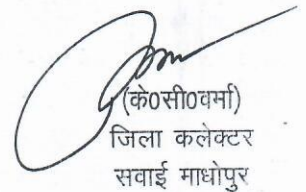 (के०सी०वर्मा)
जिला कलेक्टर
सवाई माधोपुर